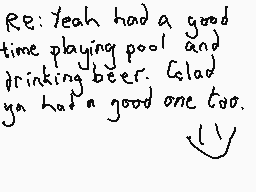 RE: Yeah had a good
time playing pool and
drinking beer. Glad
ya had a good one too.